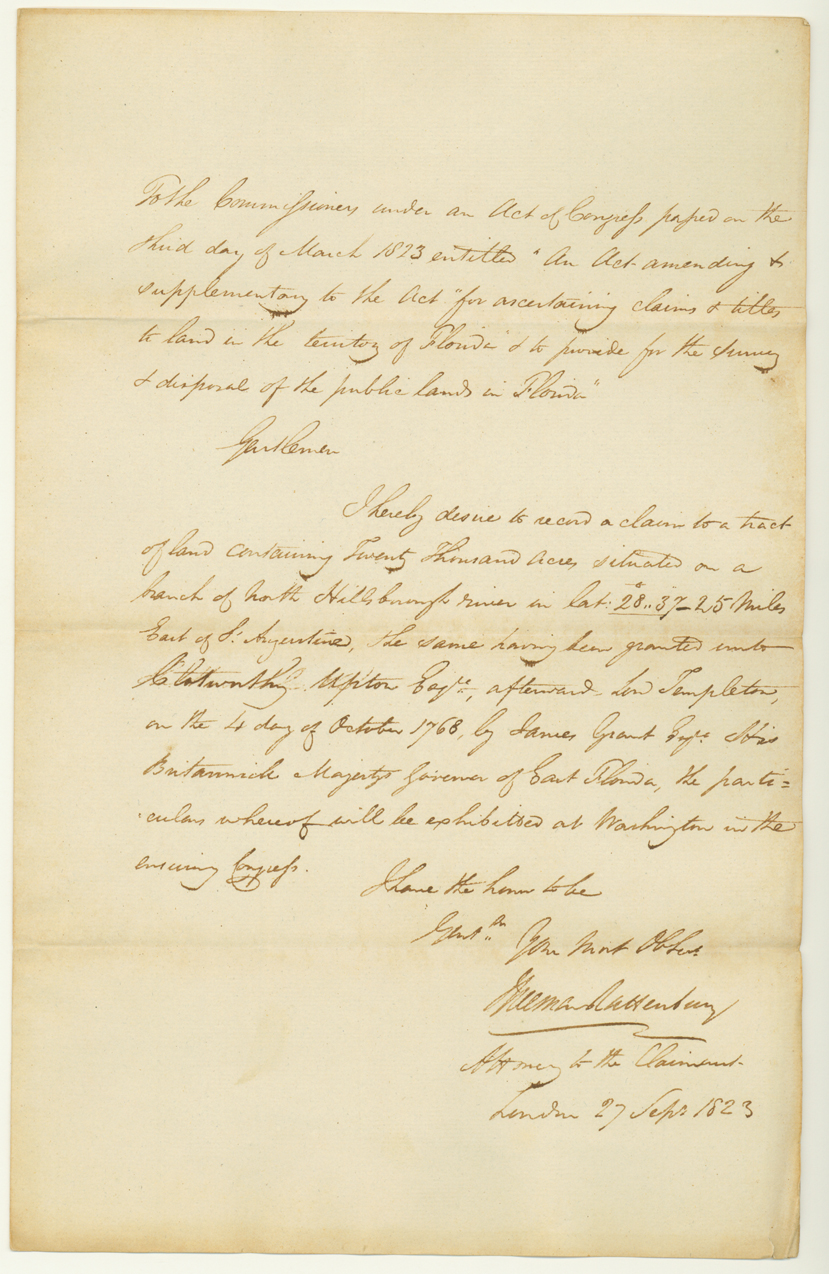 To the Commissioners under an Act of Congress passed on the
third day of March 1823 entitled "An Act amending &
supplementary to the Act "for ascertaining claims & titles
to land in the territory of Florida" & to provide for the survey
& disposal of the public lands in Florida"
Gentlemen
I hereby desire to record a claim to a tract
of land containing Twenty Thousand Acres situated on a
branch of North Hillsborough river in lat: 28°..37 - 25 Miles
East of St. Augustine, the same having been granted unto
Clotworthy Upton Esqre., afterward Lord Templeton,
on the 4 day of October 1768, by James Grant Esqr. His
Britannick Majestys Governor of East Florida, the parti=
culars whereof will be exhibited at Washington in the
ensuing Congress.
I have the honor to be
Gentn.. Your most ObSert
Freeman Rattenbury
Attorney to the Claimant
London 27 Sepr 1823